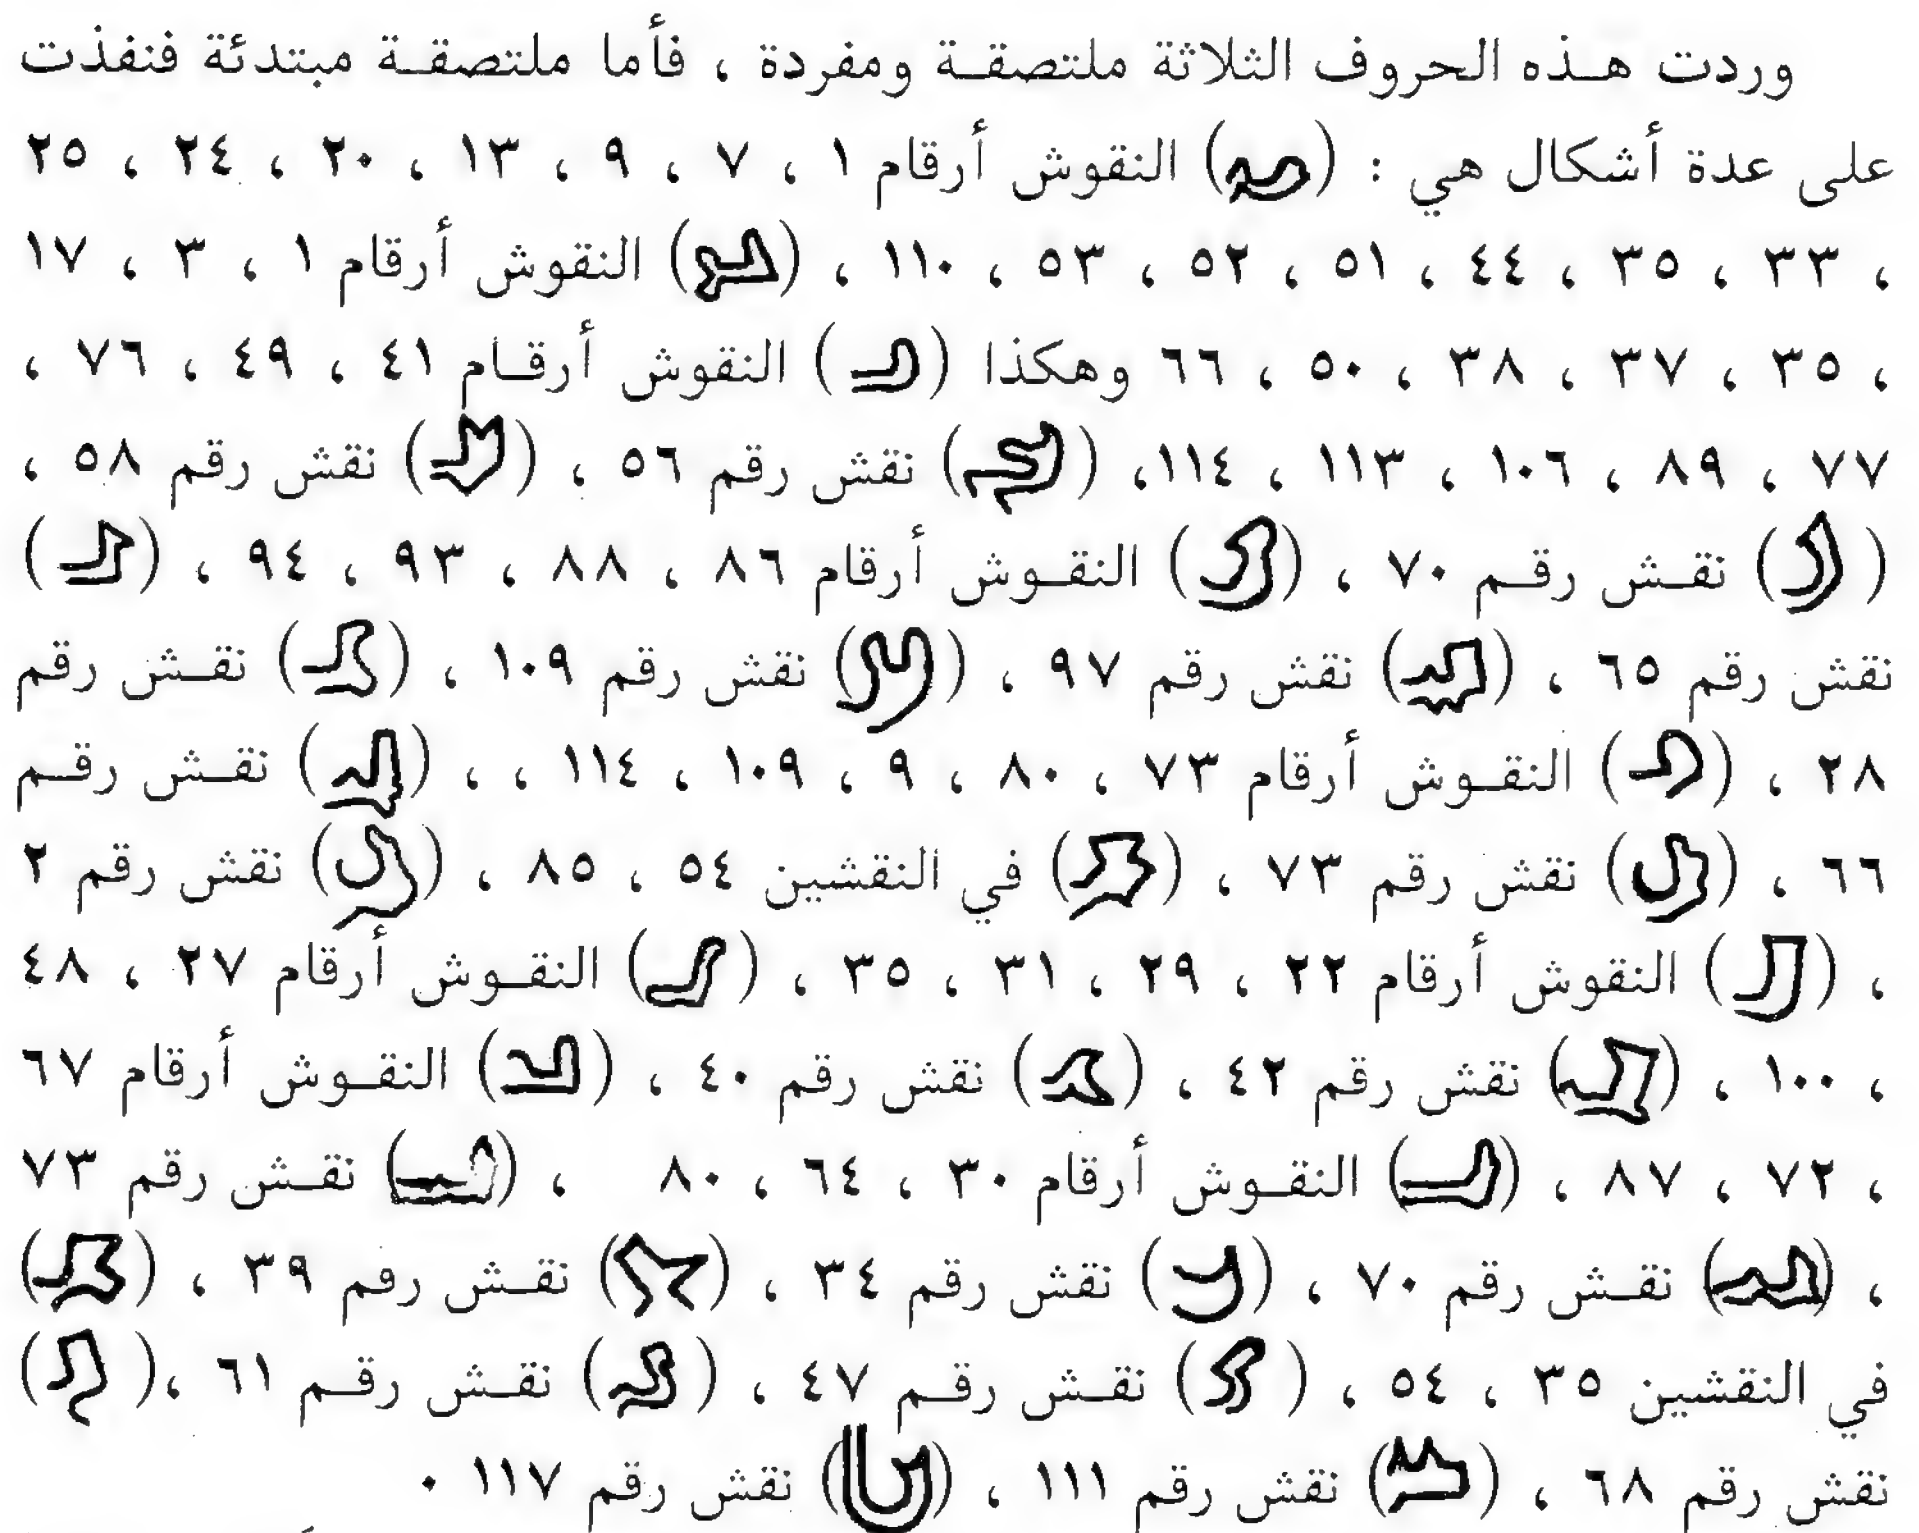 وردت هـذه الحروف الثلاثة ملتصقـة ومفردة ، فأما ملتصقـة مبتدئة فنفذت
على عدة أشكال هي : ( ) النقوش أرقام ١ ، ٧ ، ٩ ، ١٣ ، ٢٠ ، ٢٤ ، ٢٥
، ٣٣ ، ٣٥ ، ٤٤ ، ٥١ ، ٥٢ ، ٥٣ ، ١١٠ ، ( ) النقوش أرقام ١ ، ٣ ، ١٧
، ٣٥ ، ٣٧ ، ٣٨ ، ٥٠ ، ٦٦ وهكذا ( ) النقوش أرقـام ٤١ ، ٤٩ ، ٧٦ ،
٧٧ ، ٨٩ ، ١٠٦ ، ١١٣ ، ١١٤ ، ( ) نقش رقم ٥٦ ، ( ) نقش رقم ٥٨ ،
( ) نقـش رقـم ٧٠ ، ( ) النقـوش أرقام ٨٦ ، ٨٨ ، ٩٣ ، ٩٤ ، ( )
نقش رقم ٦٥ ، ( ) نقش رقم ٩٧ ، ( ) نقش رقم ١٠٩ ، ( ) نقـش رقم
٢٨ ، ( ) النقـوش أرقام ٧٣ ، ٨٠ ، ٩ ، ١٠٩ ، ١١٤ ، ، ( ) نقـش رقـم
٦٦ ، ( ) نقش رقم ٧٣ ، ( ) في النقشين ٥٤ ، ٨٥ ، ( ) نقش رقم ٢
، ( ) النقوش أرقام ٢٢ ، ٢٩ ، ٣١ ، ٣٥ ، ( ) النقـوش أرقام ٢٧ ، ٤٨
، ١٠٠ ، ( ) نقش رقم ٤٢ ، ( ) نقش رقم ٤٠ ، ( ) النقـوش أرقام ٦٧
، ٧٢ ، ٨٧ ، ( ) النقـوش أرقام ٣٠ ، ٦٤ ، ٨٠ ، ( ) نقـش رقم ٧٣
، ( ) نقـش رقم ٧٠ ، ( ) نقش رقم ٣٤ ، ( ) نقـش رقم ٣٩ ، ( )
في النقشين ٣٥ ، ٥٤ ، ( ) نقـش رقـم ٤٧ ، ( ) نقـش رقـم ٦١ ، ( )
نقش رقم ٦٨ ، ( ) نقش رقم ١١١ ، ( ) نقش رقم ١١٧ ٠